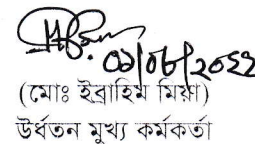 ০১/০৮/২০২২
(মোঃ ইব্রাহিম মিঞা)
উর্ধতন মুখ্য কর্মকর্তা